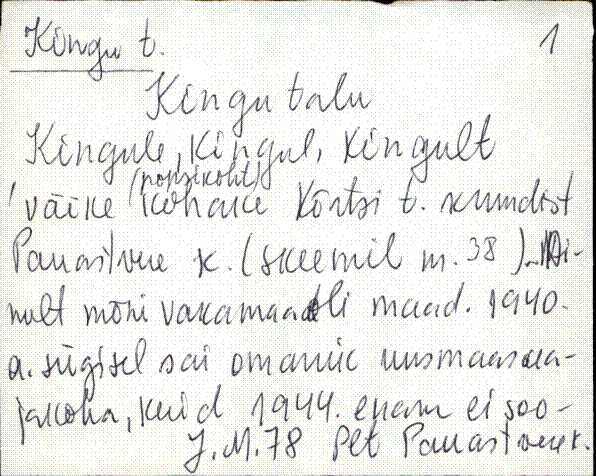 Kingu t. 1
Kingu talu
Kingule, Kingul, Kingult
(popsikoht)
'väike kohake Kõrtsi t. krundist
Panastvere k. (skeemil nr. 38). Ai-
nult mõni vakamaa maad. 1940.
a. sügisel sai omanik uusmaasaa-
jakoha, kuid 1944. enam ei soo-
J.M.78 Plt Panastvere k.